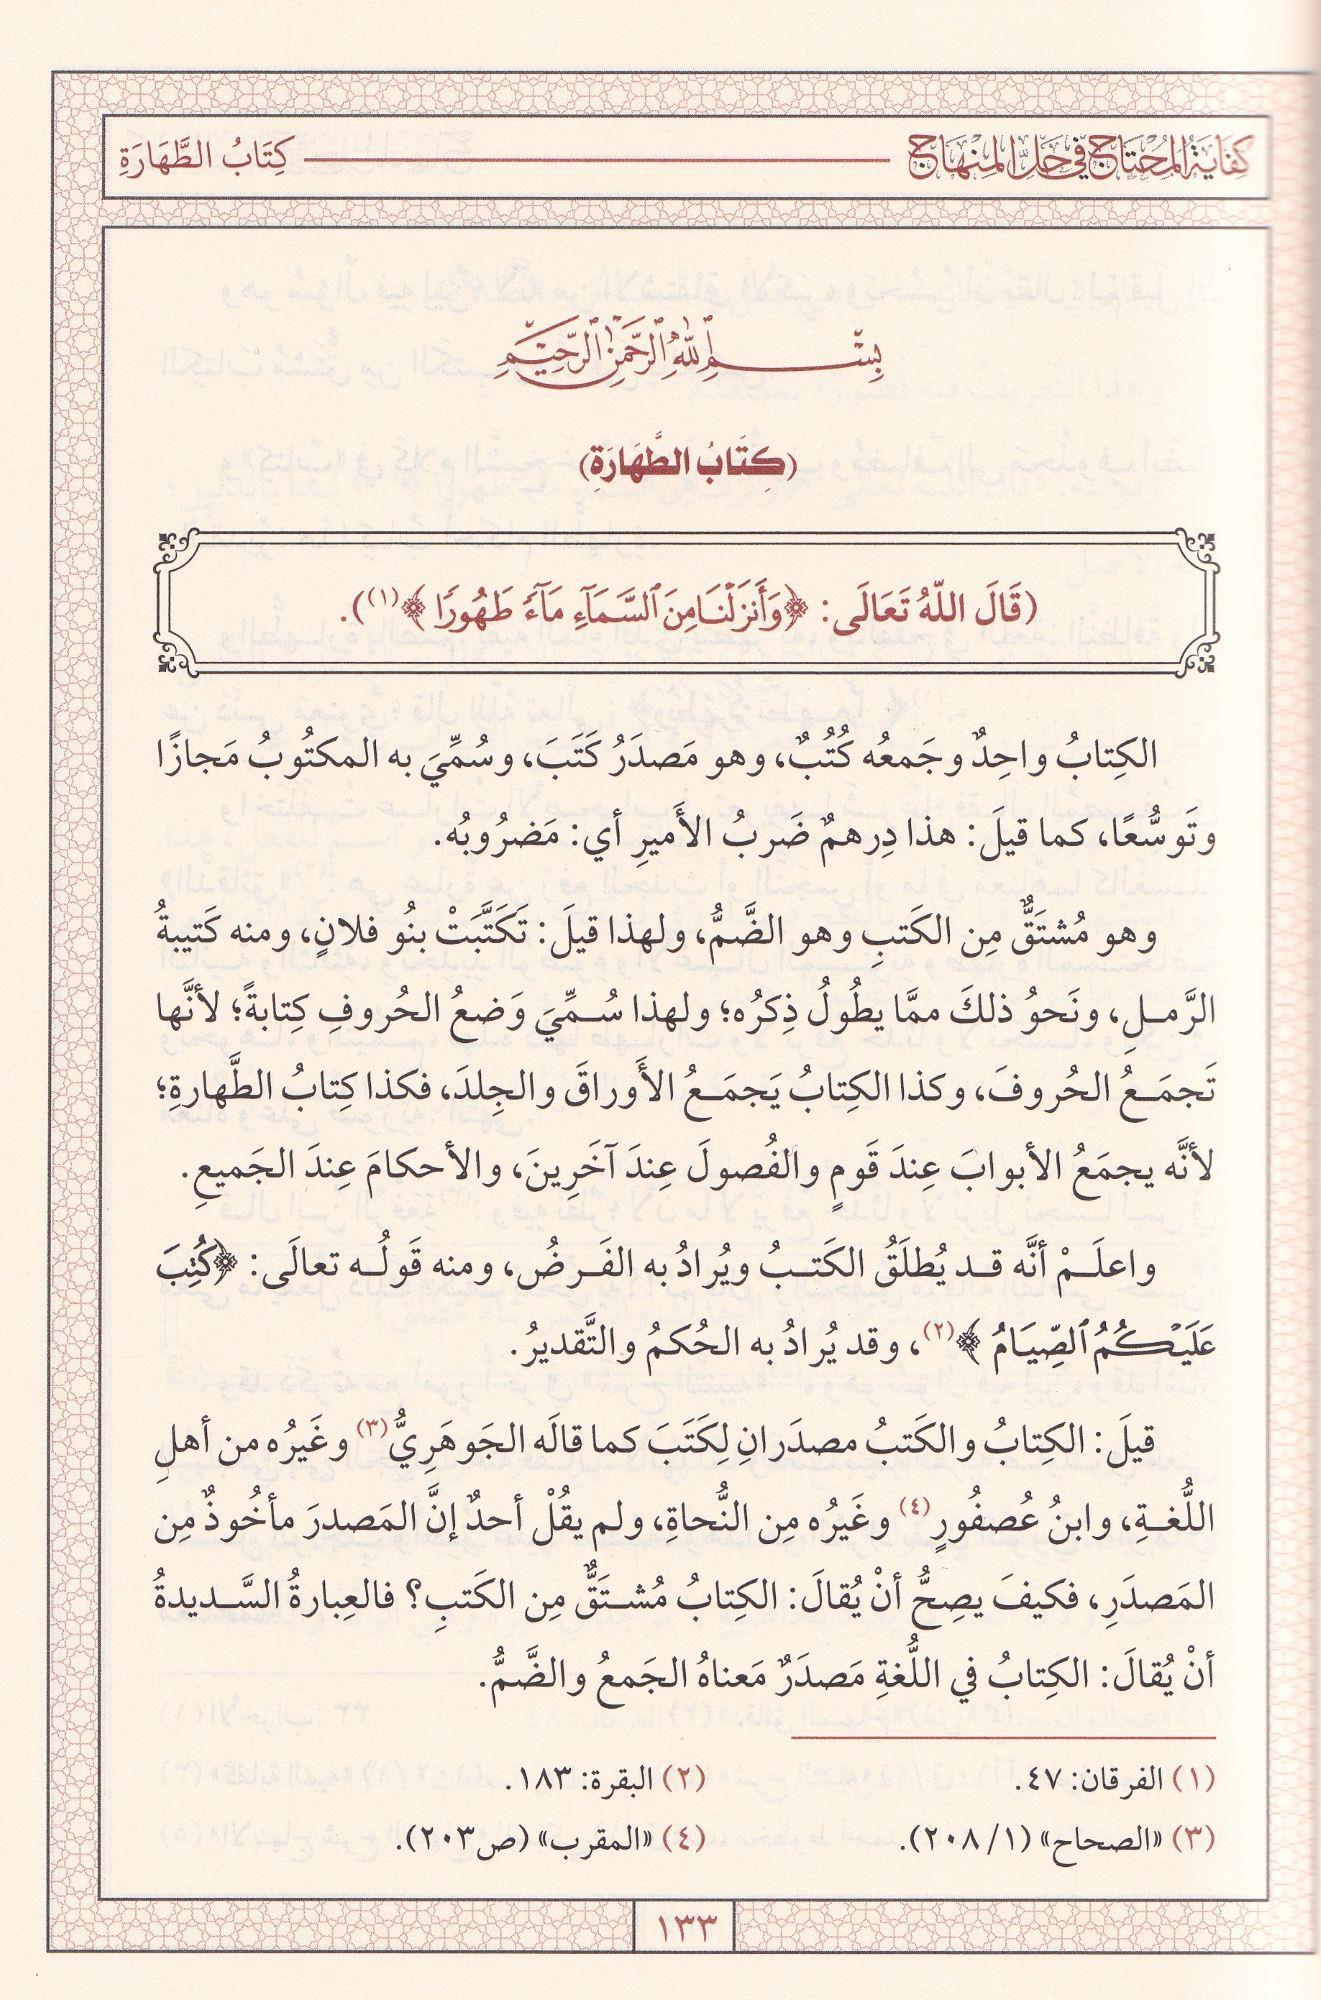 كِفَايَةُ المُحْتَاجِ فِي حَلِّ المِنْهَاجِ
كِتَابُ الطَّهَارَةِ
بِسْمِ اللهِ الرَّحْمَنِ الرَّحِيمِ
(كِتَابُ الطَّهَارَةِ)
(قَالَ اللّهُ تَعَالَى: ﴿وَأَنزَلْنَا مِنَ ٱلسَّمَآءِ مَآءً طَهُورًا﴾(١)).
الكِتابُ واحِدٌ وجَمعُه كُتُبٌ، وهو مَصدَرُ كَتَبَ، وسُمِّيَ به المكتُوبُ مَجازًا
وتَوسُّعًا، كما قيلَ: هذا دِرهمٌ ضَربُ الأَميرِ أي: مَضرُوبُه.
وهو مُشتَقٌّ مِن الكَتبِ وهو الضَّمُّ، ولهذا قيلَ: تَكَتَّبَتْ بنُو فلانٍ، ومنه كَتيبةُ
الرَّملِ، ونَحوُ ذلكَ ممَّا يطُولُ ذِكرُه؛ ولهذا سُمِّيَ وَضعُ الحُروفِ كِتابةً؛ لأنَّها
تَجمَعُ الحُروفَ، وكذا الكِتابُ يَجمَعُ الأَوراقَ والجِلدَ، فكذا كِتابُ الطَّهارةِ؛
لأنَّه يجمَعُ الأبوابَ عِندَ قَومٍ والفُصولَ عِندَ آخَرِينَ، والأحكامَ عِندَ الجَميعِ.
واعلَمْ أنَّه قد يُطلَقُ الكَتبُ ويُرادُ به الفَرضُ، ومنه قَولُه تعالَى: ﴿كُتِبَ
عَلَيْكُمُ ٱلصِّيَامُ﴾(٢)، وقد يُرادُ به الحُكمُ والتَّقديرُ.
قيلَ: الكِتابُ والكَتبُ مصدَرانِ لِكَتَبَ كما قالَه الجَوهَرِيُّ(٣) وغَيرُه من أهلِ
اللُّغةِ، وابنُ عُصفُورٍ(٤) وغَيرُه مِن النُّحاةِ، ولم يقُلْ أحدٌ إنَّ المَصدرَ مأخُوذٌ مِن
المَصدَرِ، فكيفَ يصِحُّ أنْ يُقالَ: الكِتابُ مُشتَقٌّ مِن الكَتبِ؟ فالعِبارةُ السَّديدةُ
أنْ يُقالَ: الكِتابُ في اللُّغةِ مَصدَرٌ مَعناهُ الجَمعُ والضَّمُّ.
(١) الفرقان: ٤٧. (٢) البقرة: ١٨٣.
(٣) «الصحاح» (١/ ٢٠٨). (٤) «المقرب» (ص٢٠٣).
١٣٣